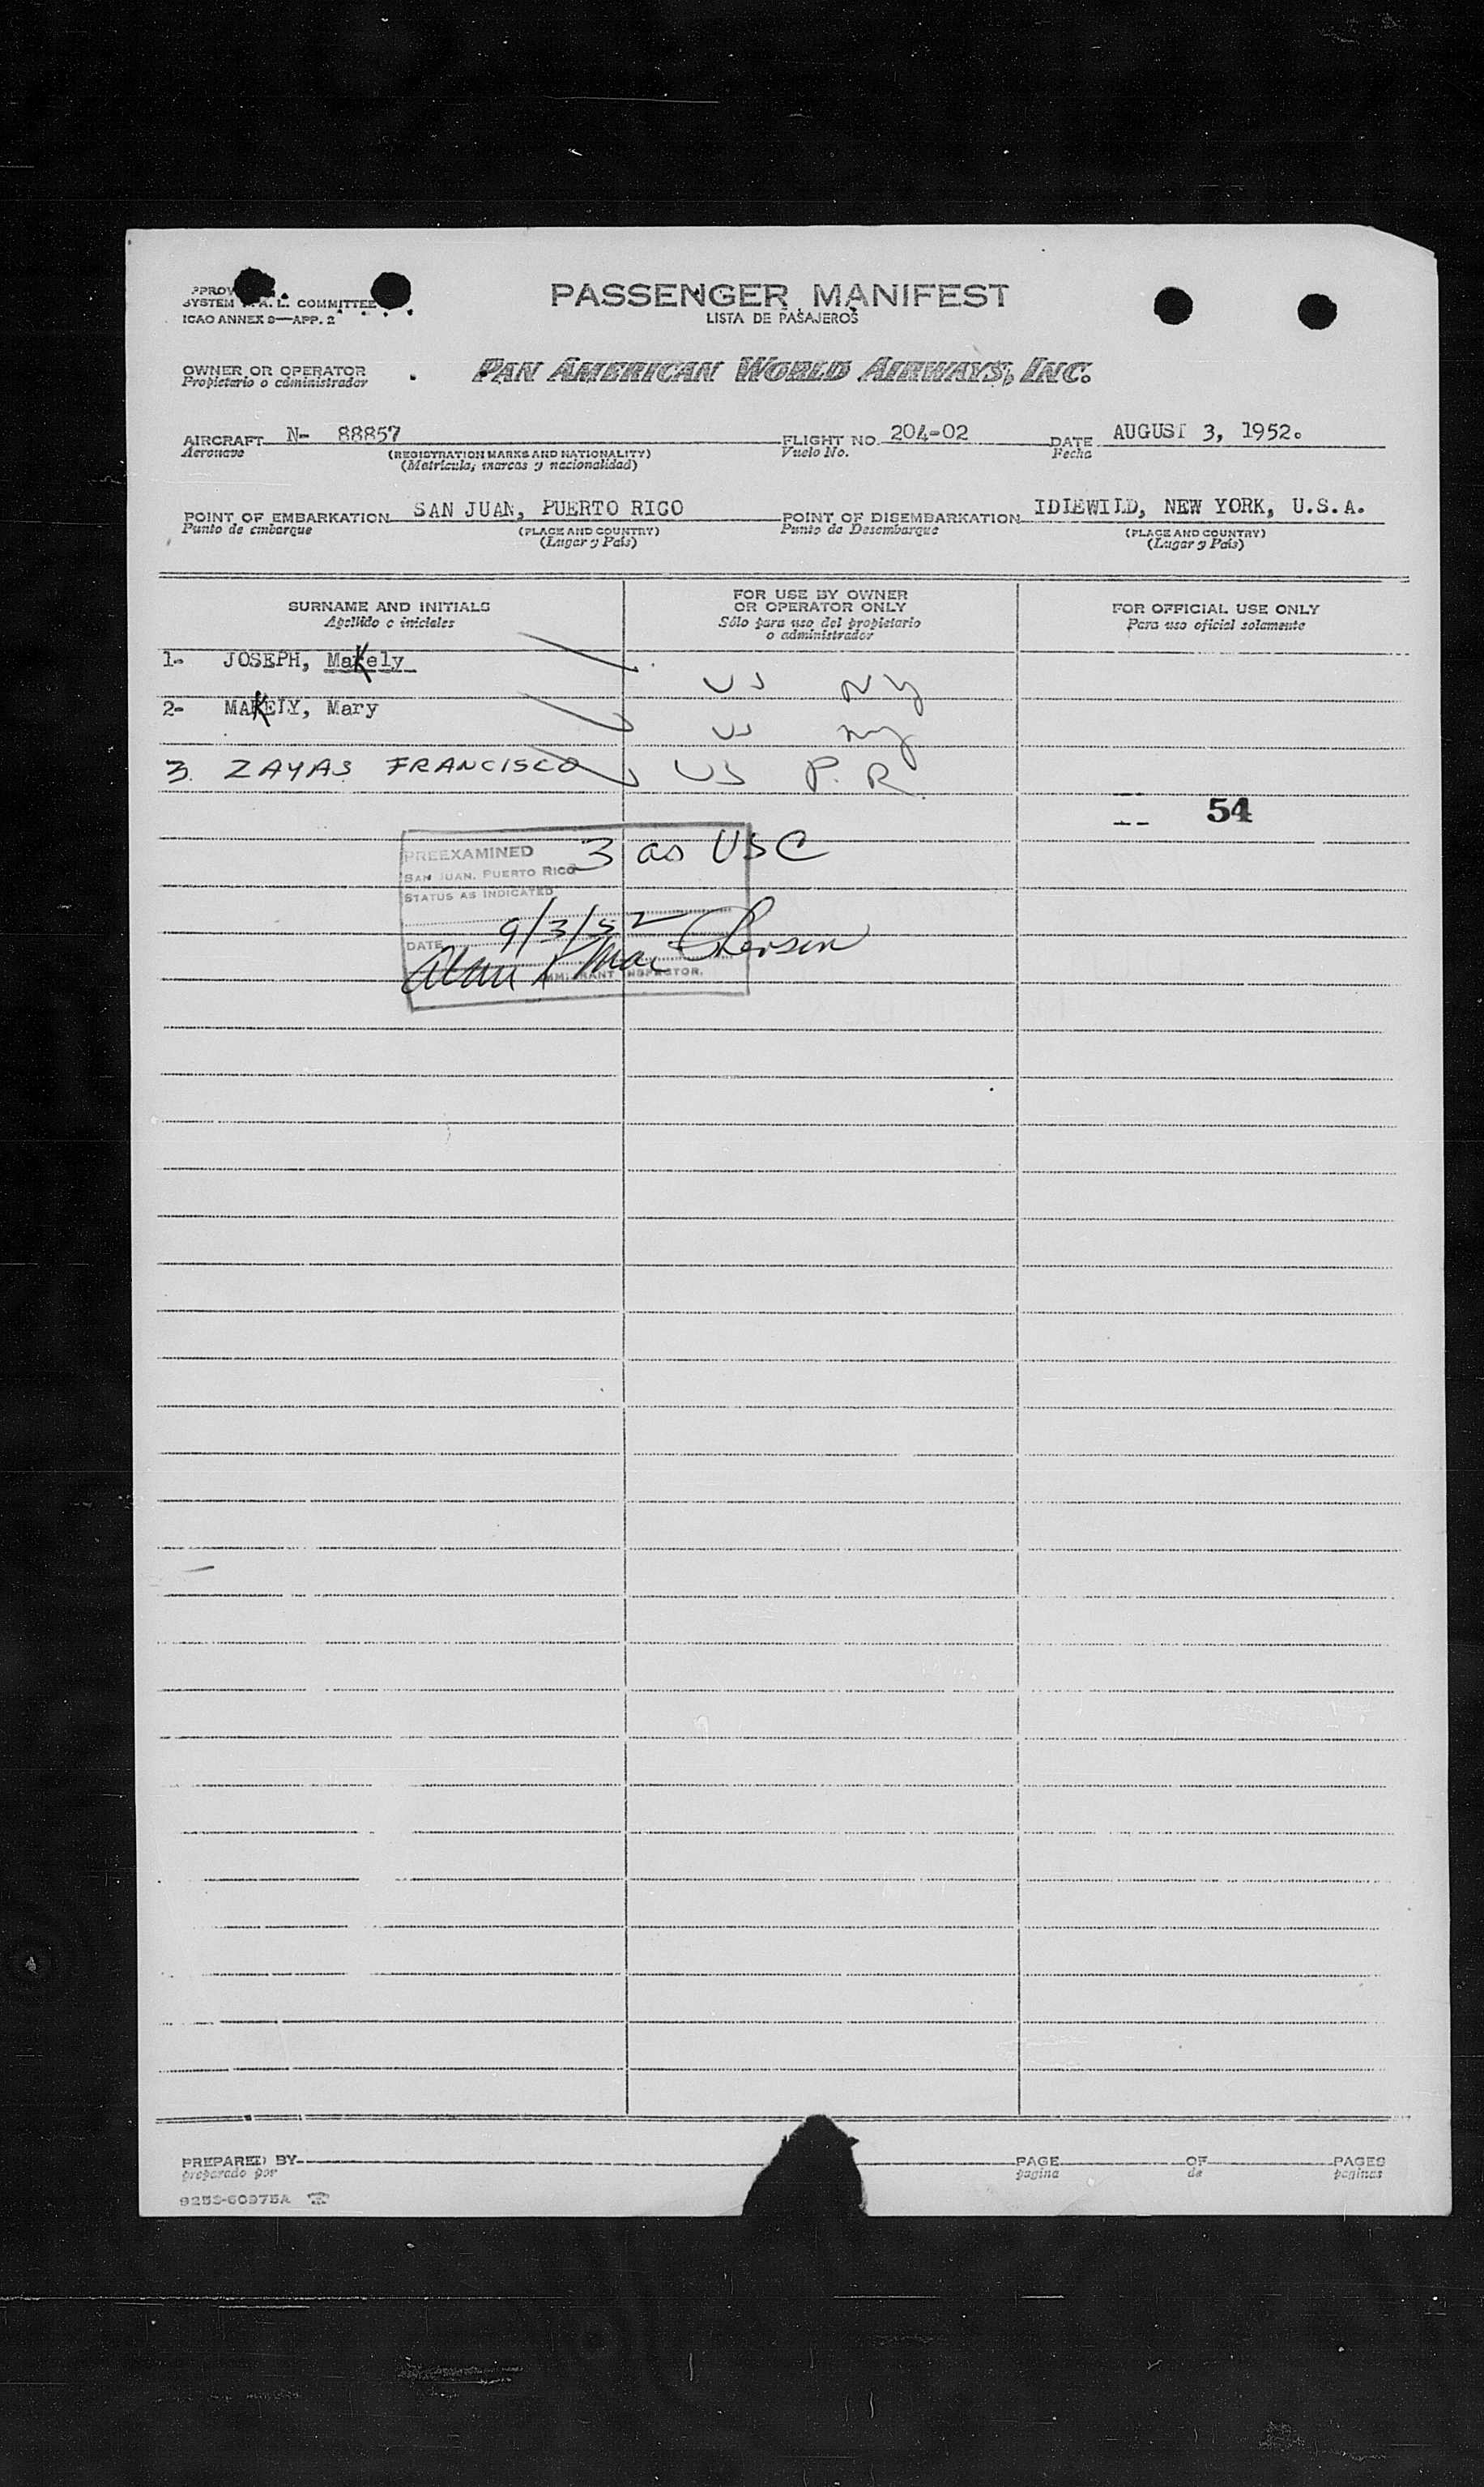 SYSTEM COMMITTEE
ICAO ANNEX 9—APP. 2
PASSENGER MANIFEST
LISTA DE PASAJEROS
OWNER OR OPERATOR
Propietario o administrador
PAN AMERICAN WORLD AIRWAYS, INC.
AIRCRAFT N- 88857 FLIGHT NO. 204-02 DATE AUGUST 3, 1952.
Aeronave (REGISTRATION MARKS AND NATIONALITY) Vuelo No. Fecha
(Matrícula, marcas y nacionalidad)
POINT OF EMBARKATION SAN JUAN, PUERTO RICO POINT OF DISEMBARKATION IDLEWILD, NEW YORK, U.S.A.
Punto de embarque (PLACE AND COUNTRY) Punto de Desembarque (PLACE AND COUNTRY)
(Lugar y País) (Lugar y País)
SURNAME AND INITIALS
Apellido e iniciales
FOR USE BY OWNER
OR OPERATOR ONLY
Sólo para uso del propietario
o administrador
FOR OFFICIAL USE ONLY
Para uso oficial solamente
1- JOSEPH, Makely US NY
2- MAKELY, Mary US NY
3. ZAYAS FRANCISCO US P.R.
54
3 as USC
PREEXAMINED
SAN JUAN, PUERTO RICO
STATUS AS INDICATED
DATE 9/3/52
Alan MacPherson
IMMIGRANT INSPECTOR.
PREPARED BY PAGE OF PAGES
preparado por pagina de paginas
9253-60975A